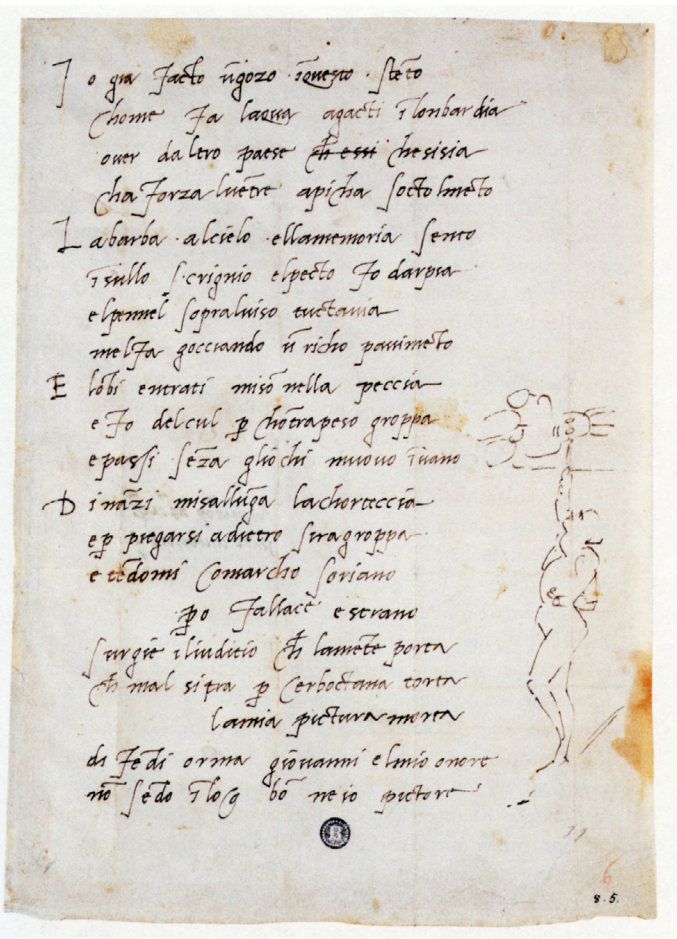 Io gia facto ūgozo īquesto stēto
chome fa laqua agacti īlonbardia
over daltro paese ch̄ essi chesisia
cha forza lvētre apicha socto lmēto
La barba alcielo ellamemoria sento
īsullo scrignio elpecto fo darpia
elpennel sopralviso tuctavia
melfa gocciando ū richo pavimēto
E lōbi entrati misō nella peccia
e fo delcul p̱ chōtrapeso groppa
epassi sēza gliochi muovo īvano
Dināzi misallūga lachorteccia
ep̱ piegarsi adietro siragroppa
e tēdomi comarcho soriano
p̱o fallace estrano
surgie iliuditio ch̄ lamēte porta
ch̄ mal sitra p̱ cerboctana torta
lamia pictura morta
difēdi orma giovanni elmio onore
nō sēdo īlog bō ne io pictore
6
8.5.